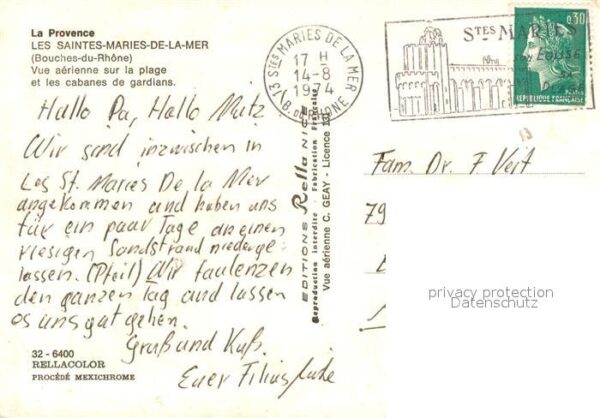 La Provence
LES SAINTES-MARIES-DE-LA-MER
(Bouches-du-Rhône)
Vue aérienne sur la plage
et les cabanes de gardians.
Hallo Pa, Hallo Mutz
Wir sind inzwischen in
Les St. Maries De la Mer
angekommen und haben uns
für ein paar Tage an einen
riesigen Sandstrand niederge-
lassen. (Pfeil) Wir faulenzen
den ganzen Tag und lassen
es uns gut gehen.
Gruß und Kuß.
Euer Filius
32 - 6400
RELLACOLOR
PROCÉDÉ MEXICHROME
EDITIONS Rella NICE
Reproduction interdite - Fabrication Française
Vue aérienne C. GEAY - Licence
13 STES MARIES DE LA MER
17 H
14-8
1974
B. DU RHONE
STES MARIES
son EGLISE
0,30
POSTES
REPUBLIQUE FRANÇAISE
13
Fam. Dr. F. Veit
79
privacy protection
Datenschutz